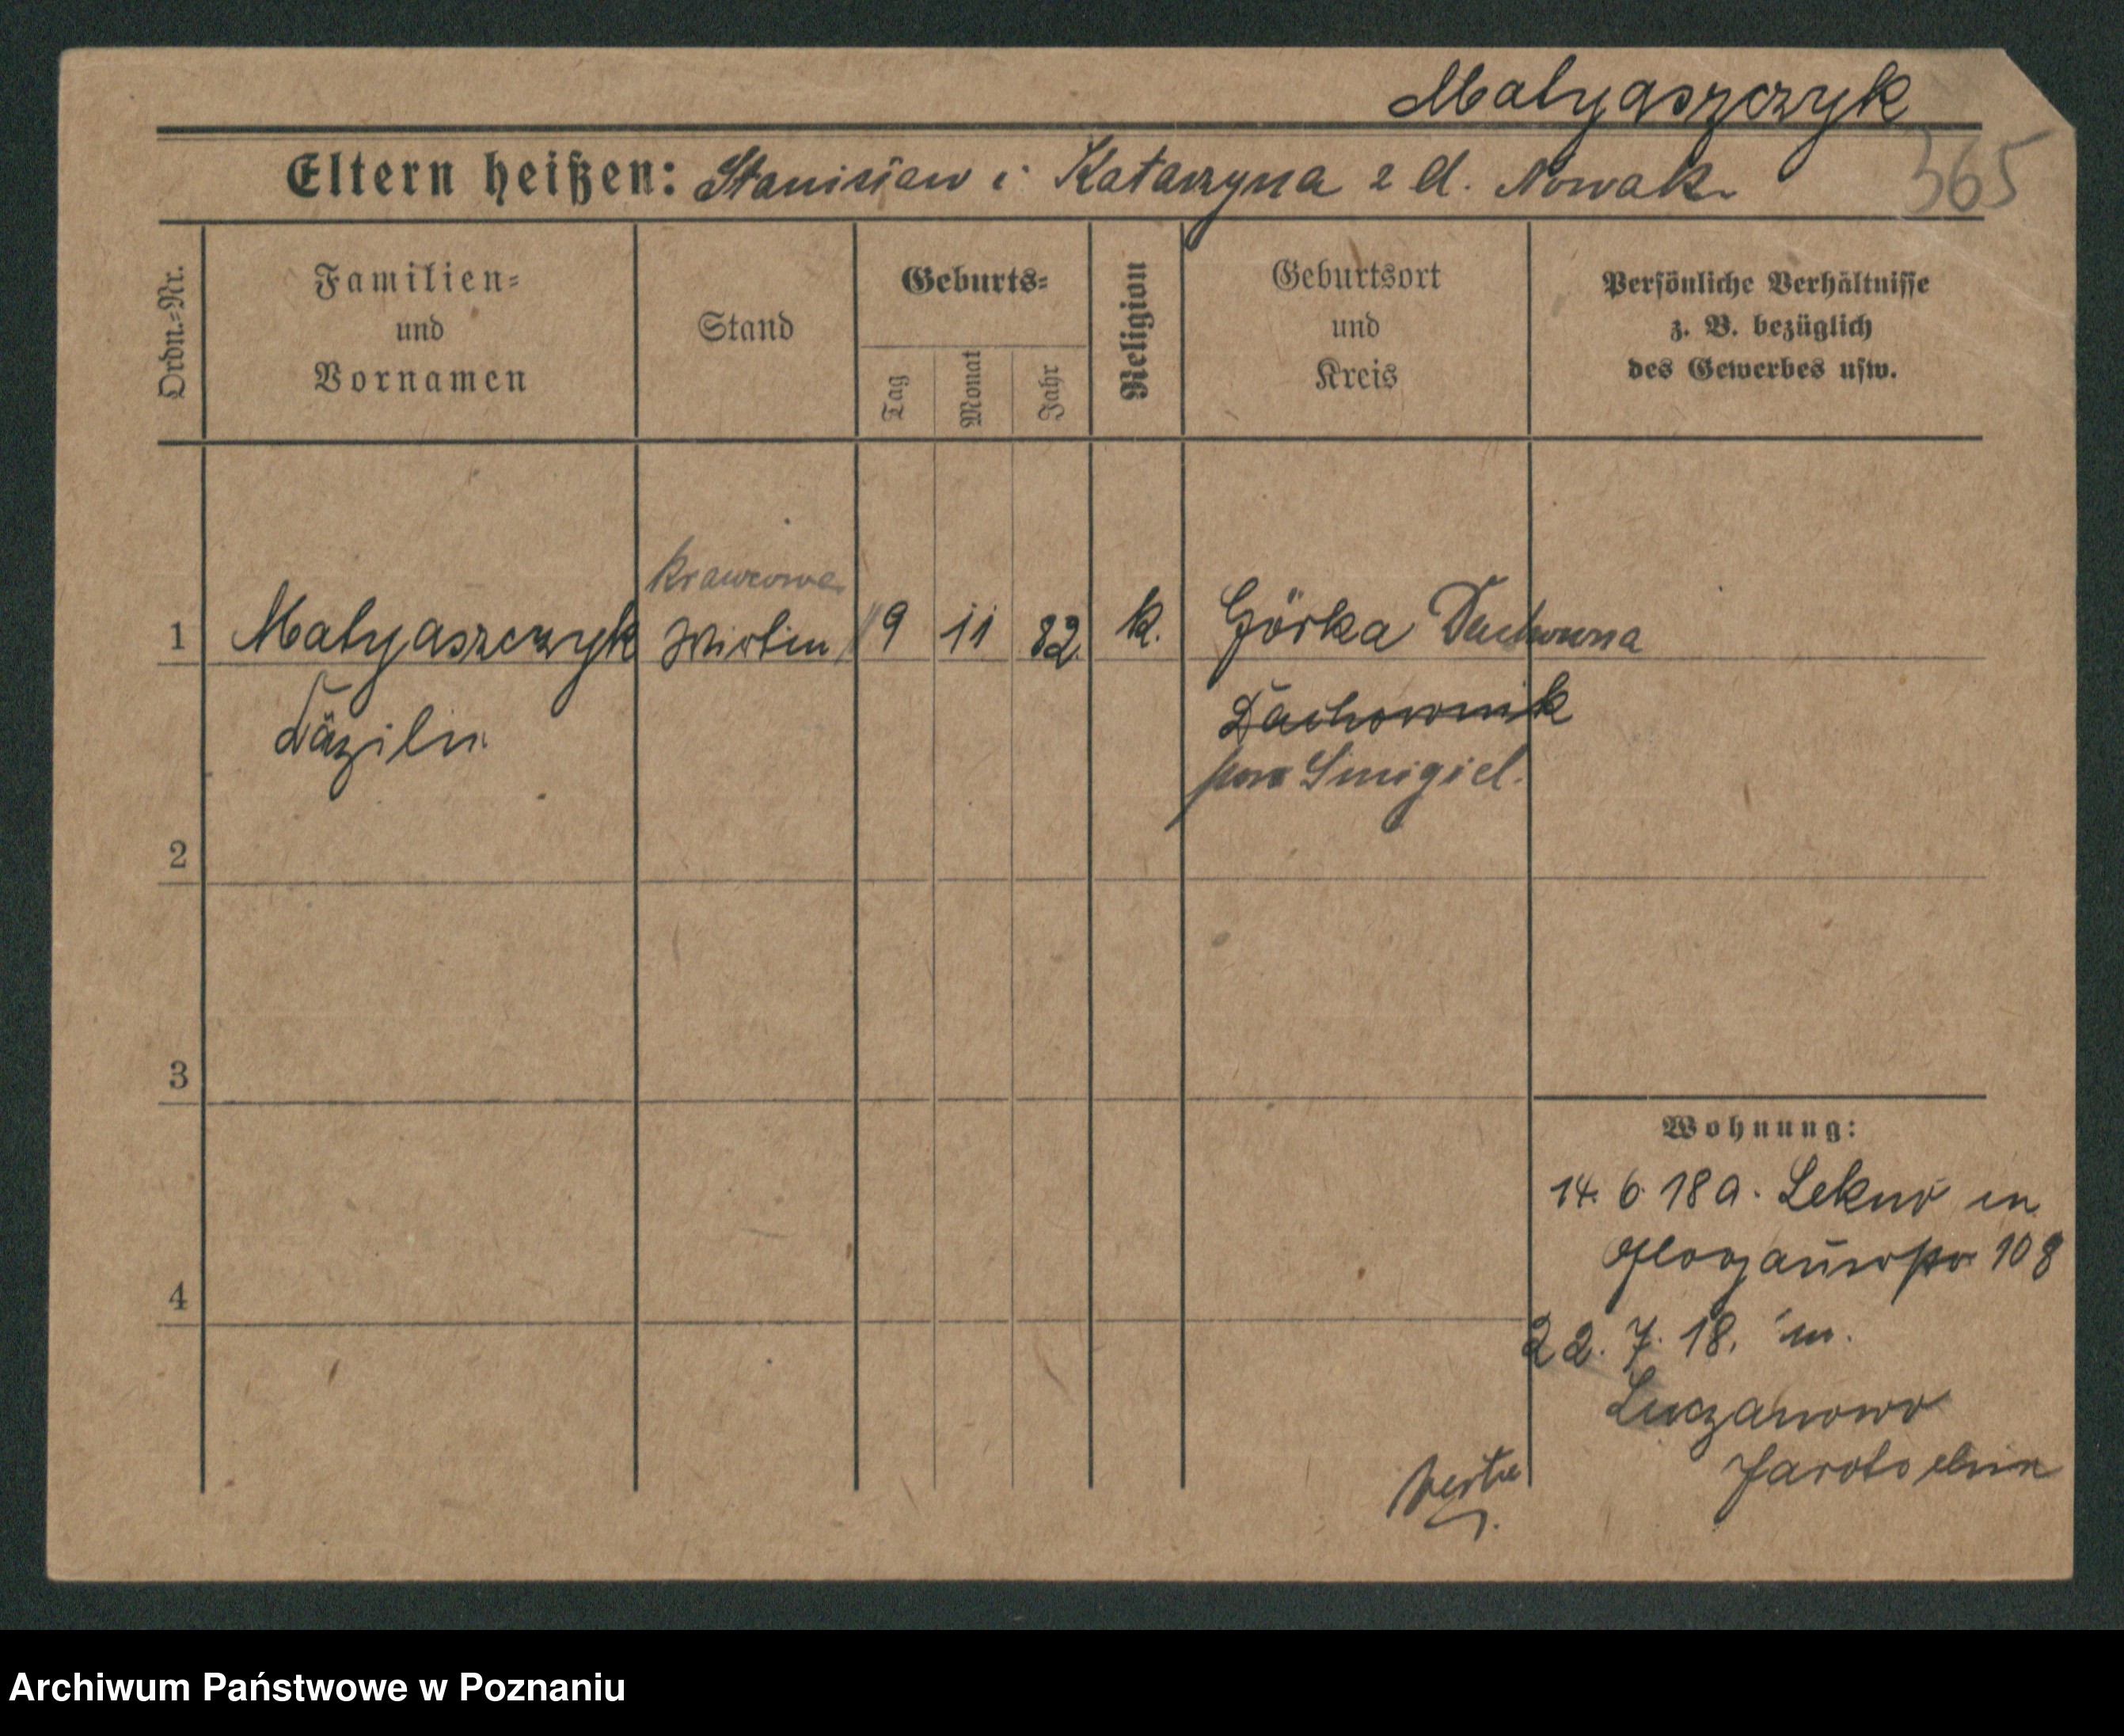 Matyaszczyk
365
Eltern heißen: Stanisław i Katarzyna z d. Nowak
Ordn.=Nr.
Familien=
und
Vornamen
Stand
Geburts=
Tag
Monat
Jahr
Religion
Geburtsort
und
Kreis
Persönliche Verhältnisse
z. B. bezüglich
des Gewerbes usw.
Krawcowa
1 Matyaszczyk 9 11 82 k. Górka Duchowna
Duchownik
pow Smigiel.
2
3
4
Wohnung:
14. 6. 18 a. Lekno in
Glogauerstr 108
22. 7. 18. in
Luczanowo
Jarotschin
Archiwum Państwowe w Poznaniu